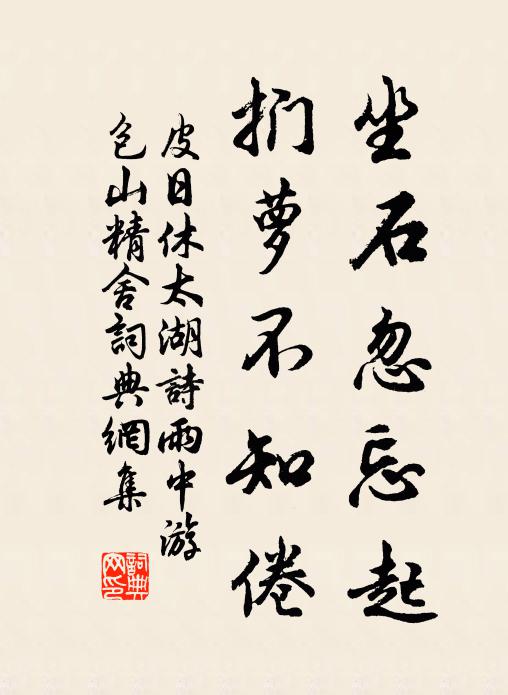 坐石忽忘起
捫蘿不知倦
皮日休太湖詩雨中游
包山精舍詞典網集
詞典網印